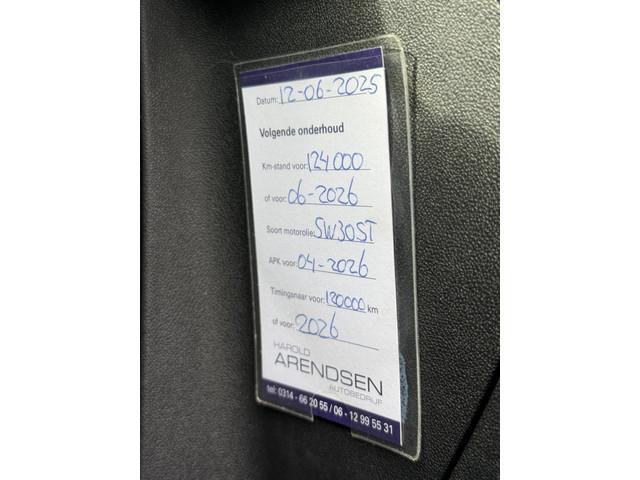 Datum: 12-06-2025
Volgende onderhoud
Km-stand voor: 124000
of voor: 06-2026
Soort motorolie: 5W30ST
APK voor: 04-2026
Timingsnaar voor: 120000 km
of voor: 2026
HAROLD
ARENDSEN
AUTOBEDRIJF
tel: 0314 - 66 20 55 / 06 - 12 99 55 31